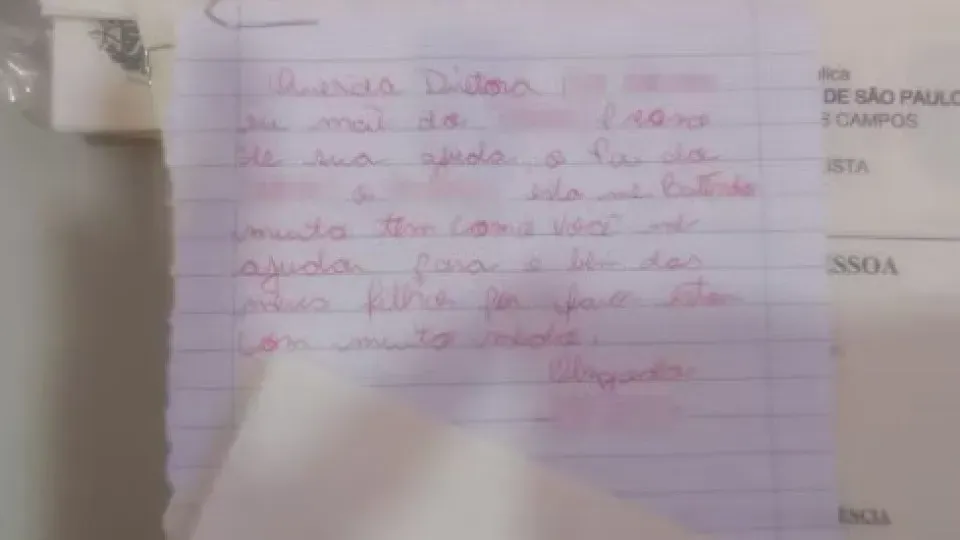 Querida Diretora
eu mãe do
de sua ajuda o Pai do
e esta me Batendo
muito tem como você me
ajudar para o bem dos
meus filho por favor estou
com muito medo.
Obrigada
lica
DE SÃO PAULO
S CAMPOS
ISTA
SSOA
ENCIA